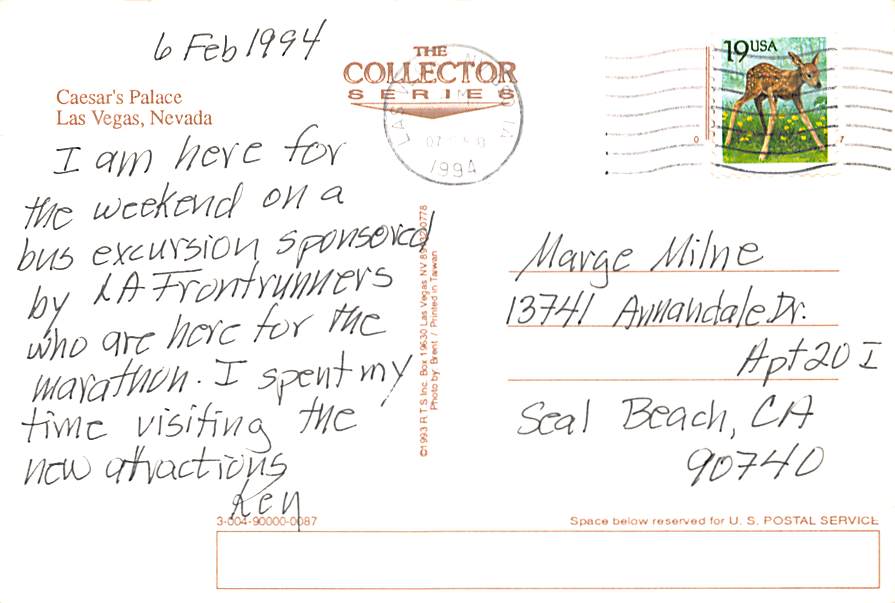 6 Feb 1994
THE
COLLECTOR
SERIES
19 USA
Caesar's Palace
Las Vegas, Nevada
I am here for
the weekend on a
bus excursion sponsored
by LA Frontrunners
who are here for the
marathon. I spent my
time visiting the
new attractions
Ken
1994
©1993 R T S Inc. Box 19630 Las Vegas NV
Photo by: Brent / Printed in Taiwan
Marge Milne
13741 Annandale Dr.
Apt 20 I
Seal Beach, CA
90740
3-004-90000-0087
Space below reserved for U. S. POSTAL SERVICE